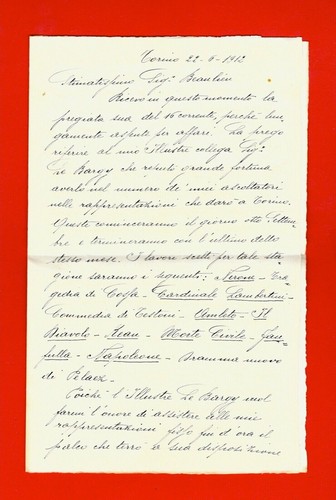 Torino 22-6-1912
Stimatissimo Sigr. Beaulieu
Ricevo in questo momento la
pregiata sua del 16 corrente, perché lun-
gamente assente per affari. La prego
referire al mio Illustre collega Sigr.
Le Bargy che reputo grande fortuna
averlo nel numero dei miei ascoltatori
nelle rappresentazioni che darò a Torino.
Queste cominceranno il giorno otto Settem-
bre e termineranno con l'ultimo dello
stesso mese. I lavori scelti per tale sta-
gione saranno i seguenti: Nerone - Tra-
gedia di Cossa - Cardinale Lambertini -
Commedia di Testoni - Amleto - Il
Diavolo - Kean - Morte Civile - Fan-
fulla - Napoleone - Dramma nuovo
di Pelaez -
Poiché l'Illustre Le Bargy vuol
farmi l'onore di assistere alle mie
rappresentazioni fisso fin d'ora il
palco che terrò a sua disposizione